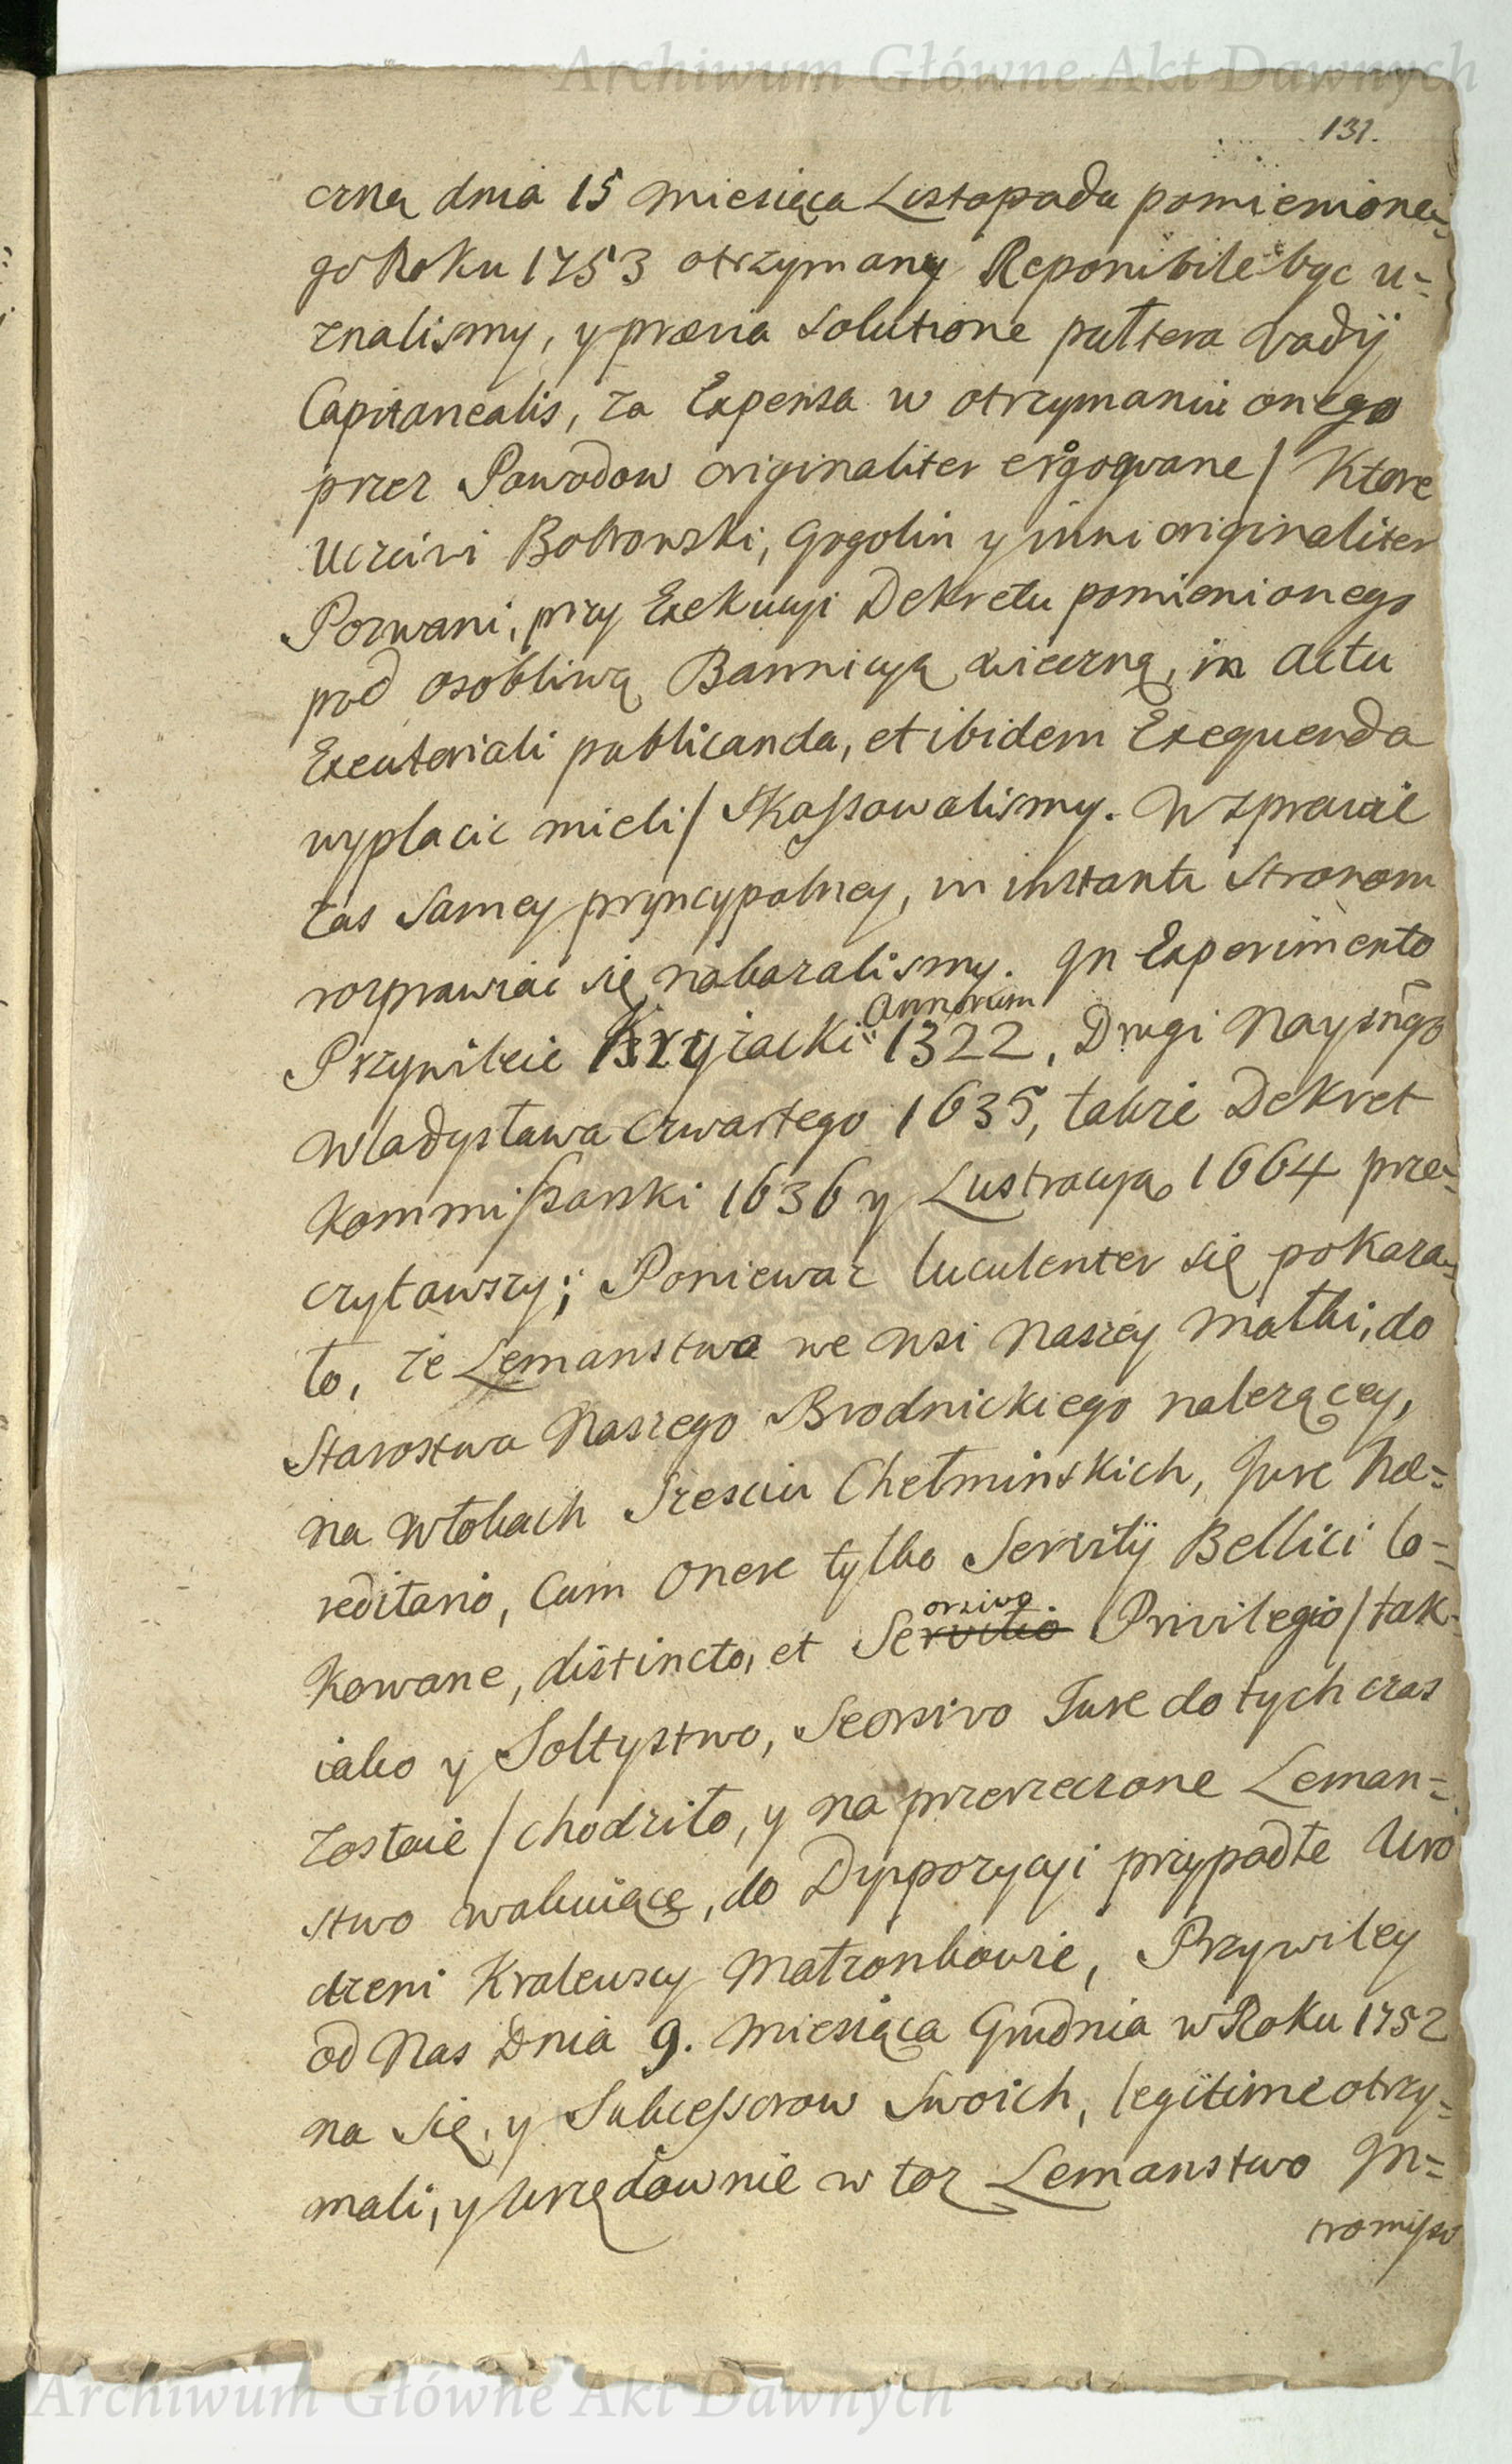 Archiwum Główne Akt Dawnych
131.
czną dnia 15 Miesiąca Listopada pomienione=
go Roku 1753 otrzymany Reponibile byc u=
znalismy, y prævia Solutione pułtera Vadij
Capitanealis, za Expensa w otrzymaniu onego
przez Powodow originaliter erogowane / Ktore
Uczciwi Bobrowski, Gogolin y inni originaliter
Pozwani, przy Exekucyi Dekretu pomienionego
pod osobliwą Bannicyą wieczną, in Actu
Executoriali publicanda, et ibidem Exequenda
wypłacic mieli / Skassowalismy. W Sprawie
zas Samey pryncypalney, in instanti Stronom
rozprawiać się nakazalismy. In Experimento
Przywileie Krzyżacki Annorum 1322, Drugi Nayśńgo
Władysława Czwartego 1635, także Dekret
Kommissarski 1636 y Lustracyą 1664 prze=
czytawszy; Ponieważ luculenter się pokaza=
ło, że Lemanstwo we Wsi Naszey Małki, do
Starostwa Naszego Brodnickiego należącey,
na Włokach Szesciu Chełminskich, Jure hæ=
reditario, Cum Onere tylko Servitij Bellici lo=
kowane, distincto, et Seorsivo Privilegio / tak
iako y Sołtystwo, Seorsivo Jure do tych czas
zostaie / chodziło, y na przerzeczone Leman=
stwo wakuiące, do Dyspozycyi przypadłe Uro
dzeni Kralewscy Małżonkowie, Przywiley
od Nas Dnia 9. Miesiąca Grudnia w Roku 1752
na Się, y Sukcessorow Swoich, legitime otrzy=
mali, y Urzędownie w toż Lemanstwo In=
tromisso
Archiwum Główne Akt Dawnych